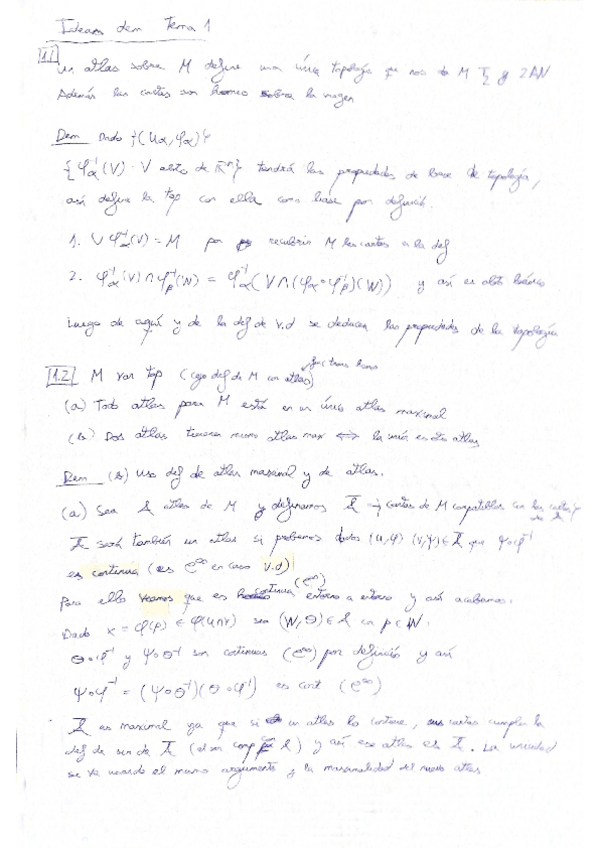 Ideas dem Tema 1
1.1 Un atlas sobre M define una única topología que nos da M T2 y 2AN
Además las cartas son homeo sobre la imagen
Dem Dado {(Uα, φα)}
{φα⁻¹(V) · V abto de ℝⁿ} tendrá las propiedades de base de topología,
así define la top con ella como base por definició.
1. ∪ φα⁻¹(V) = M por recubrir M las cartas en la def
2. φα⁻¹(V) ∩ φβ⁻¹(W) = φα⁻¹(V ∩ (φα∘φβ⁻¹)(W)) y así es abto básico
Luego de aquí y de la def de v.d se deducen las propiedades de la topología
1.2 M var top (cojo def de M con atlas) func trans homeo
(a) Todo atlas para M está en un único atlas maximal
(b) Dos atlas tienen mismo atlas max ⟷ la unión es otro atlas
Dem (b) Uso def de atlas maximal y de atlas.
(a) Sea A atlas de M y definamos Ā = {cartas de M compatibles con las cartas de A}
Ā será también un atlas si probamos dados (U,φ) (V,ψ) ∈ Ā que ψ∘φ⁻¹
es continua (es C∞ en caso v.d)
Para ello veamos que es continua (C∞) entorno a entorno y así acabamos.
Dado x = φ(p) ∈ φ(U∩V) sea (W,θ) ∈ A con p ∈ W.
θ∘φ⁻¹ y ψ∘θ⁻¹ son continuas (C∞) por definició y así
ψ∘φ⁻¹ = (ψ∘θ⁻¹)(θ∘φ⁻¹) es cont (C∞)
Ā es maximal ya que si un atlas lo contiene, sus cartas cumplen la
def de ser de Ā (al ser comp A) y así ese atlas es Ā. La unicidad
se ve usando el mismo argumento y la maximalidad del nuevo atlas